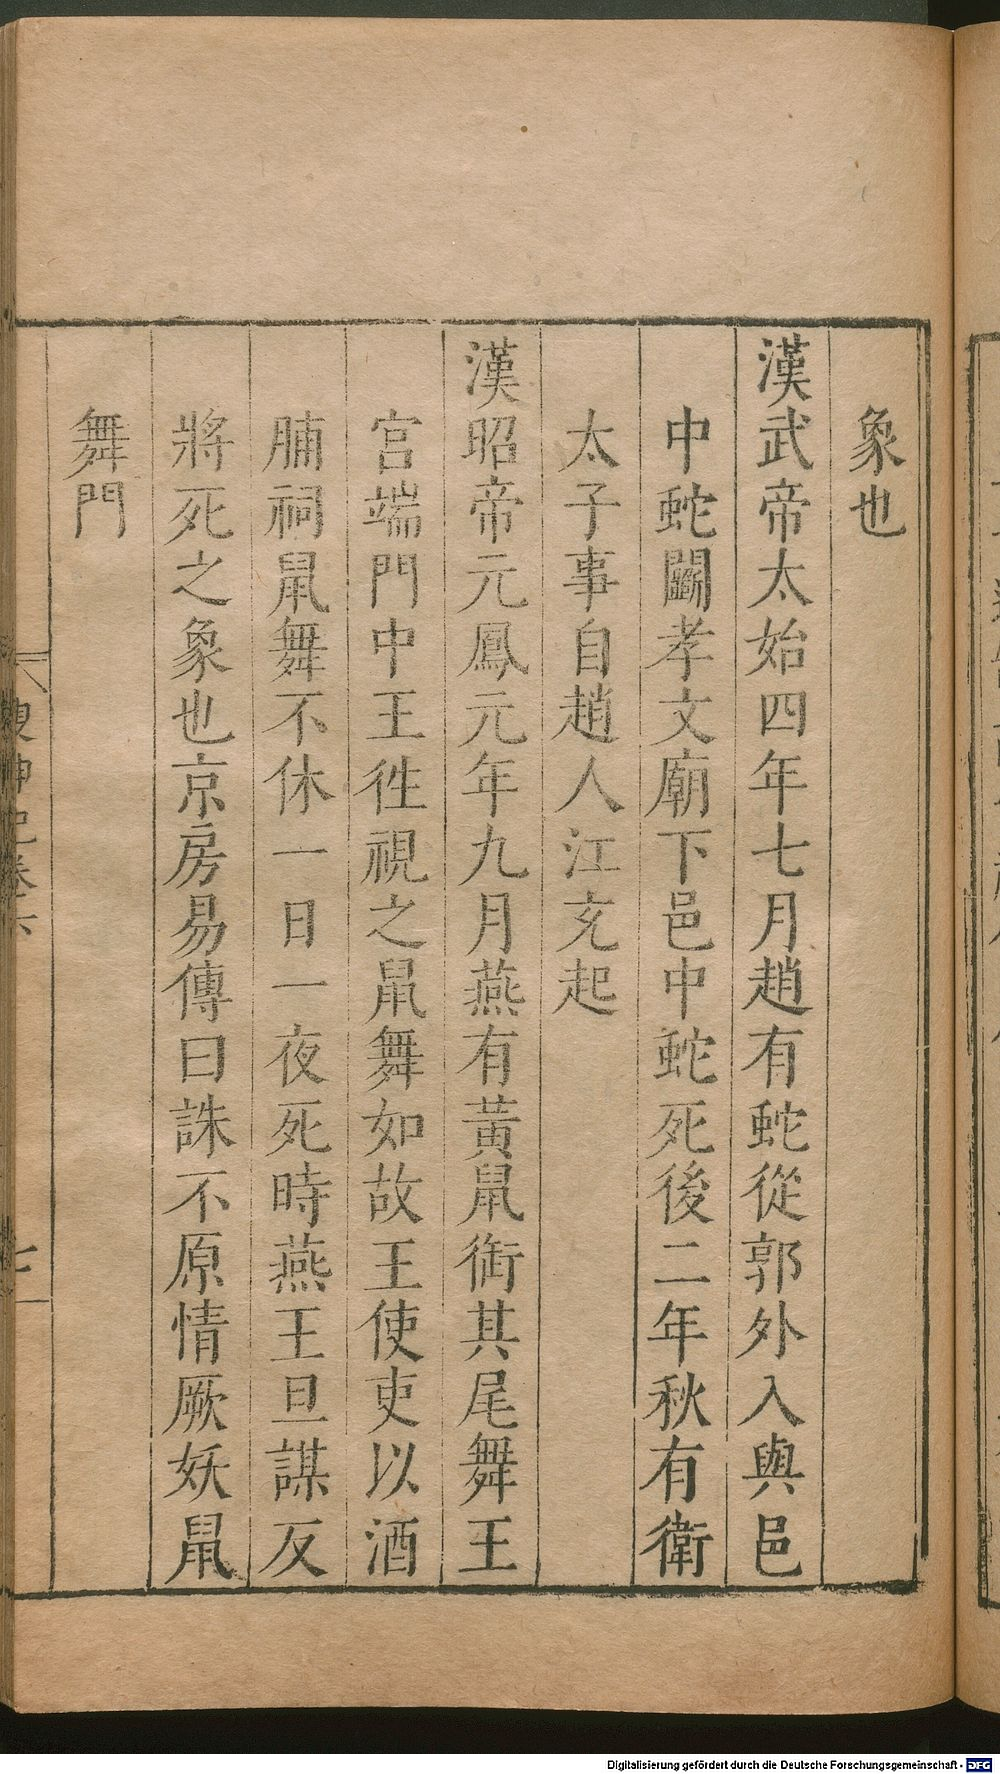 象也
漢武帝太始四年七月趙有蛇從郭外入與邑
中蛇鬬孝文廟下邑中蛇死後二年秋有衛
太子事自趙人江充起
漢昭帝元鳳元年九月燕有黃鼠銜其尾舞王
宮端門中王徃視之鼠舞如故王使吏以酒
脯祠鼠舞不休一日一夜死時燕王旦謀反
將死之象也京房易傳曰誅不原情厥妖鼠
舞門
搜神記卷六
七
Digitalisierung gefördert durch die Deutsche Forschungsgemeinschaft - DFG